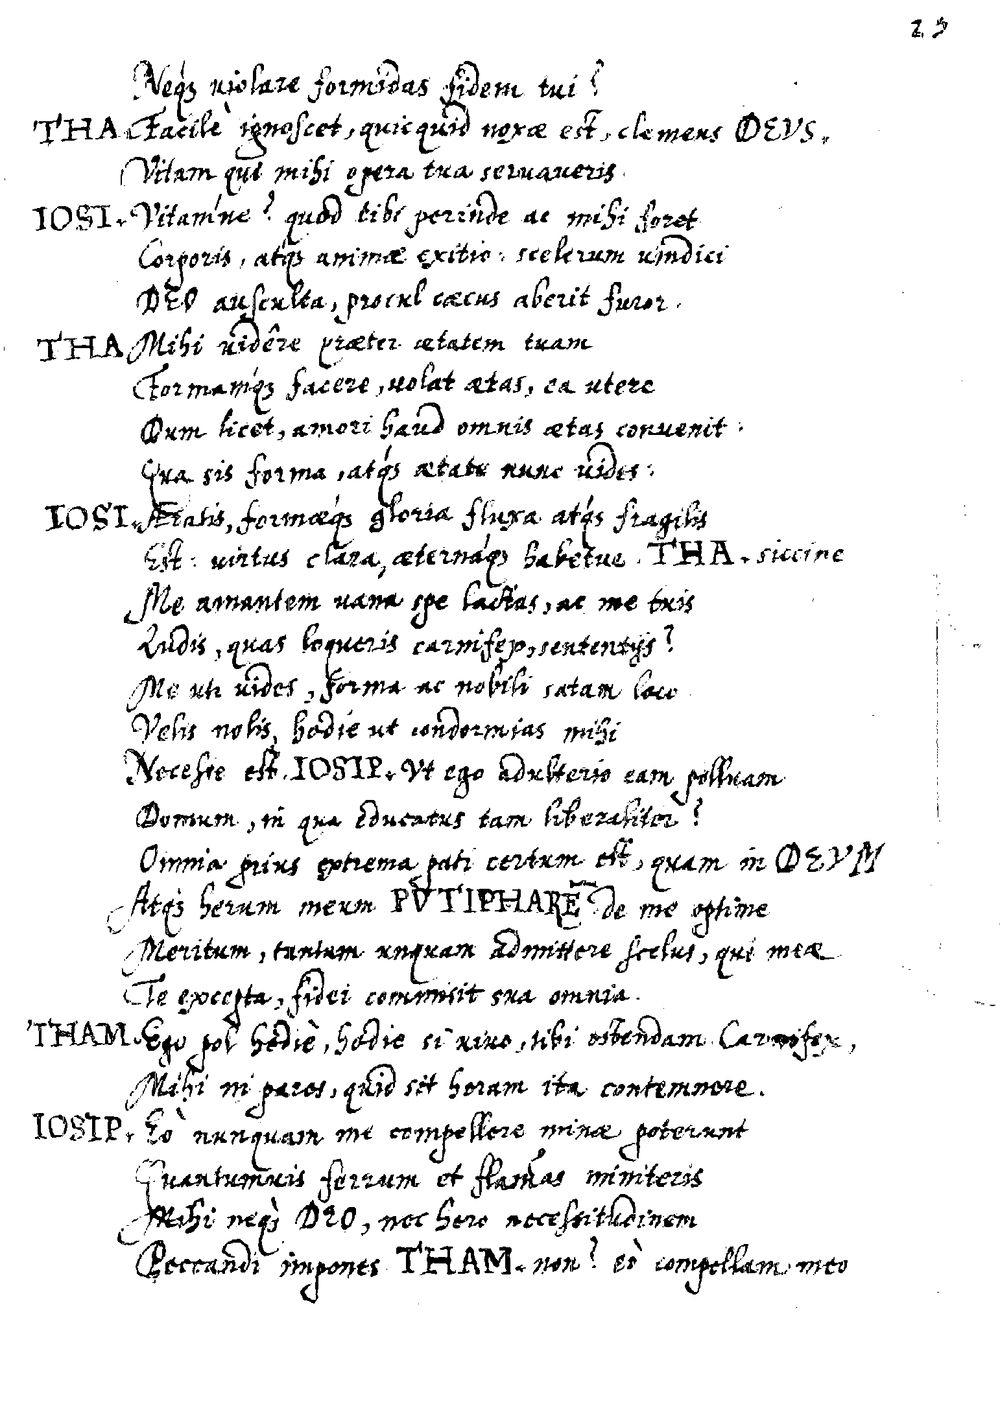 29
Neq́ꝫ uiolare formidas fidem tui?
THA. Facilè ignoscet, quicquid noxæ est, clemens DEVS.
Vitam qui mihi opera tua seruaueris.
IOSI. Vitamńe? quod tibi perinde ac mihi foret
Corporis, atq́ꝫ animæ exitio: scelerum uindici
DEO ausculta, procul cæcus aberit furor.
THA Mihi uidêre præter ætatem tuam
Formamq́ꝫ facere, uolat ætas, ea utere
Dum licet, amori haud omnis ætas conuenit:
Qua sis forma, atq́ꝫ ætate nunc uides:
IOSI. Ætatis, formæq́ꝫ gloria fluxa atq́ꝫ fragilis
Est: uirtus clara, æternaq́ꝫ habetur. THA. siccine
Me amantem uana spe lactas, ac me tuis
Ludis, quas loqueris carnifex, sententijs?
Me uti uides, forma ac nobili satam loco
Velis nolis, hodie ut condormias mihi
Necesse est. IOSIP. Vt ego adulterio eam polluam
Domum, in qua educatus tam liberaliter?
Omnia prius extrema pati certum est, quam in DEVM
Atq́ꝫ herum meum PVTIPHARẼ de me optime
Meritum, tantum unquam admittere scelus, qui meæ
Te excepta, fidei commisit sua omnia.
THAM. Ego pol hodiè, hodie si uiuo, tibi ostendam Carnifex,
Mihi ni pares, quid sit heram ita contemnere.
IOSIP. Eò nunquam me compellere minæ poterunt
Quantumuis ferrum et flam̃as miniteris
Mihi neq́ꝫ DEO, nec hero necessitudinem
Peccandi impones THAM. non? eò compellam meo